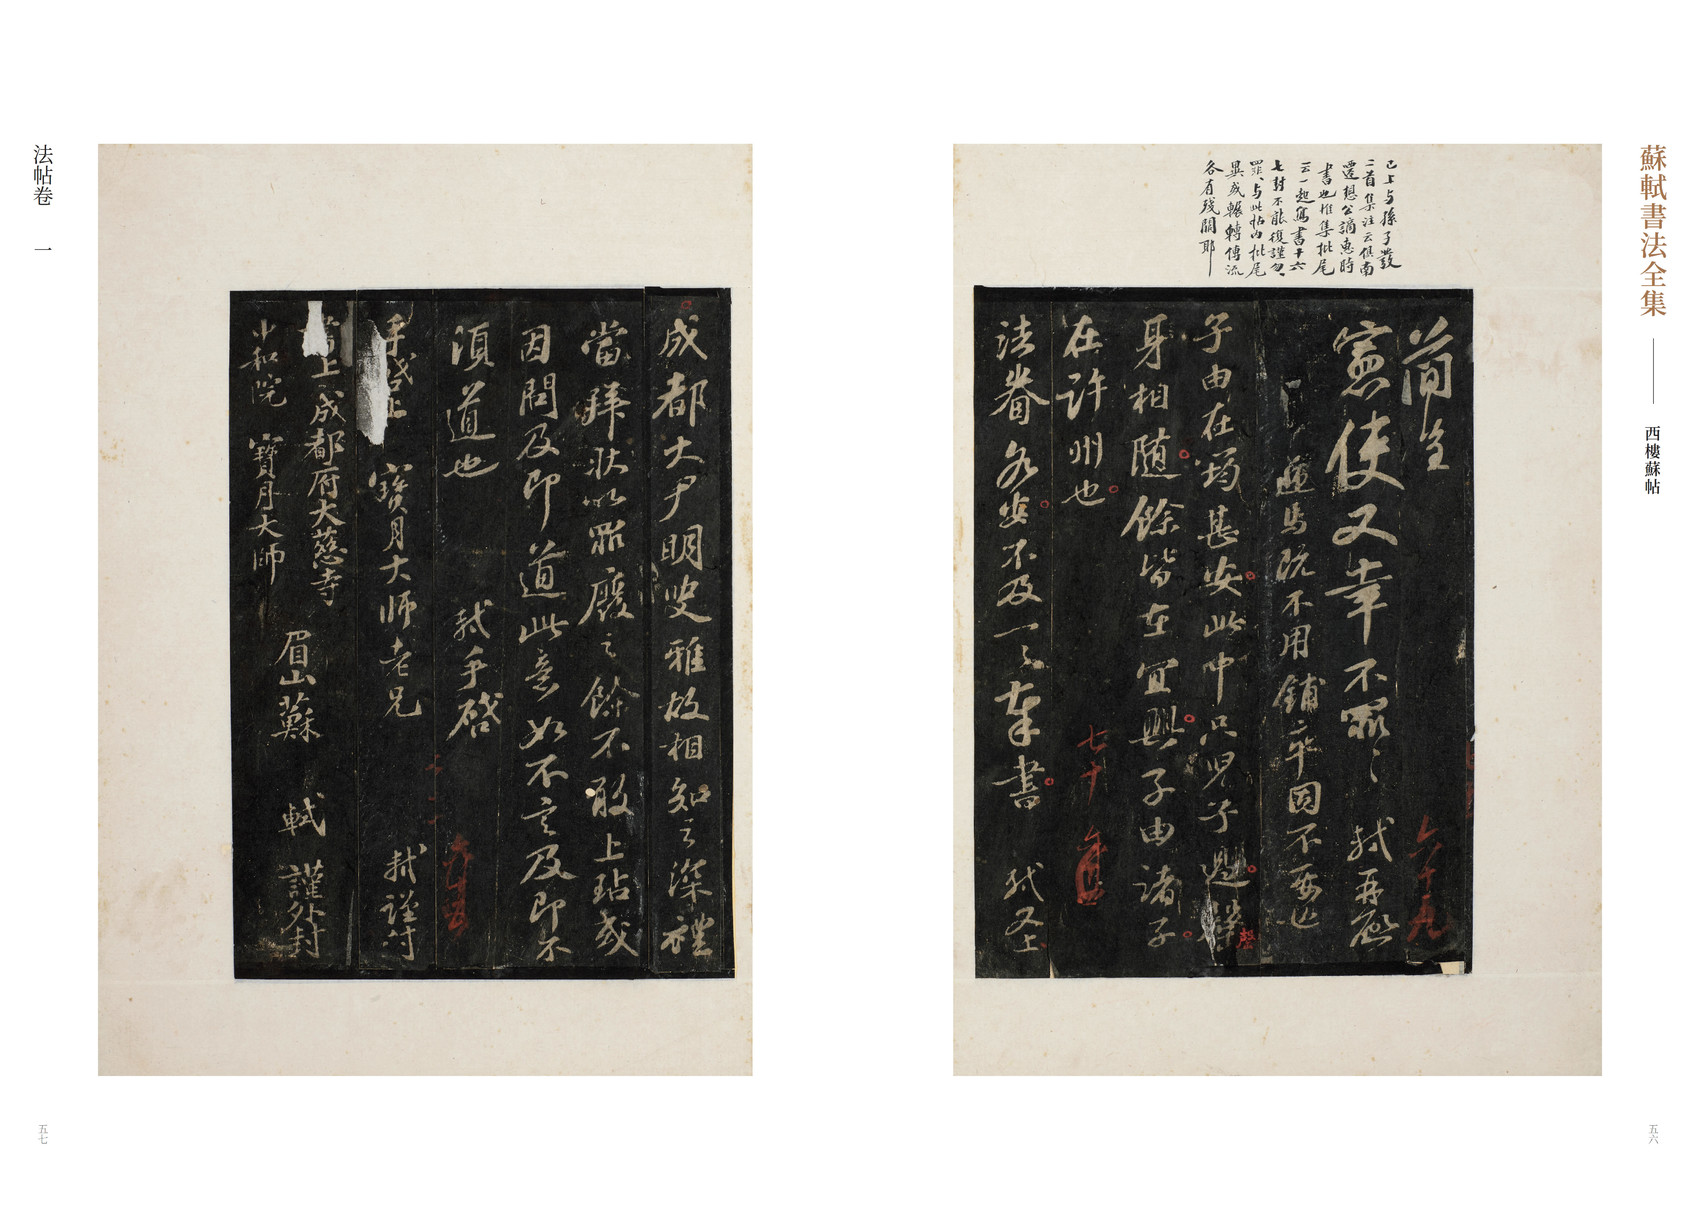 蘇軾書法全集
西樓蘇帖
五六
已上与孫子發
二首集注云俱南
遷想公謫惠時
書也惟集批尾
云一起寫書十六
七封不能復謹勿
罪与此帖内批尾
異或輾轉傳流
各有殘闕耶
簡至
憲使又幸不罪々 軾再啟
遞馬既不用鋪卒因不要也
子由在筠甚安此中只兒子過
身相隨餘皆在宜興子由諸子
在許州也
法眷各安不及一々奉書 軾又上
六十九
七十
成都大尹明叟雅故相知之深禮
當拜狀以罪廢之餘不敢上玷或
因問及即道此意如不言及即不
須道也 軾手啓
手啓上 寶月大師老兄 軾謹封
上成都府大慈寺 眉山蘇 軾 謹外封
中和院 寶月大師
法帖卷 一
五七